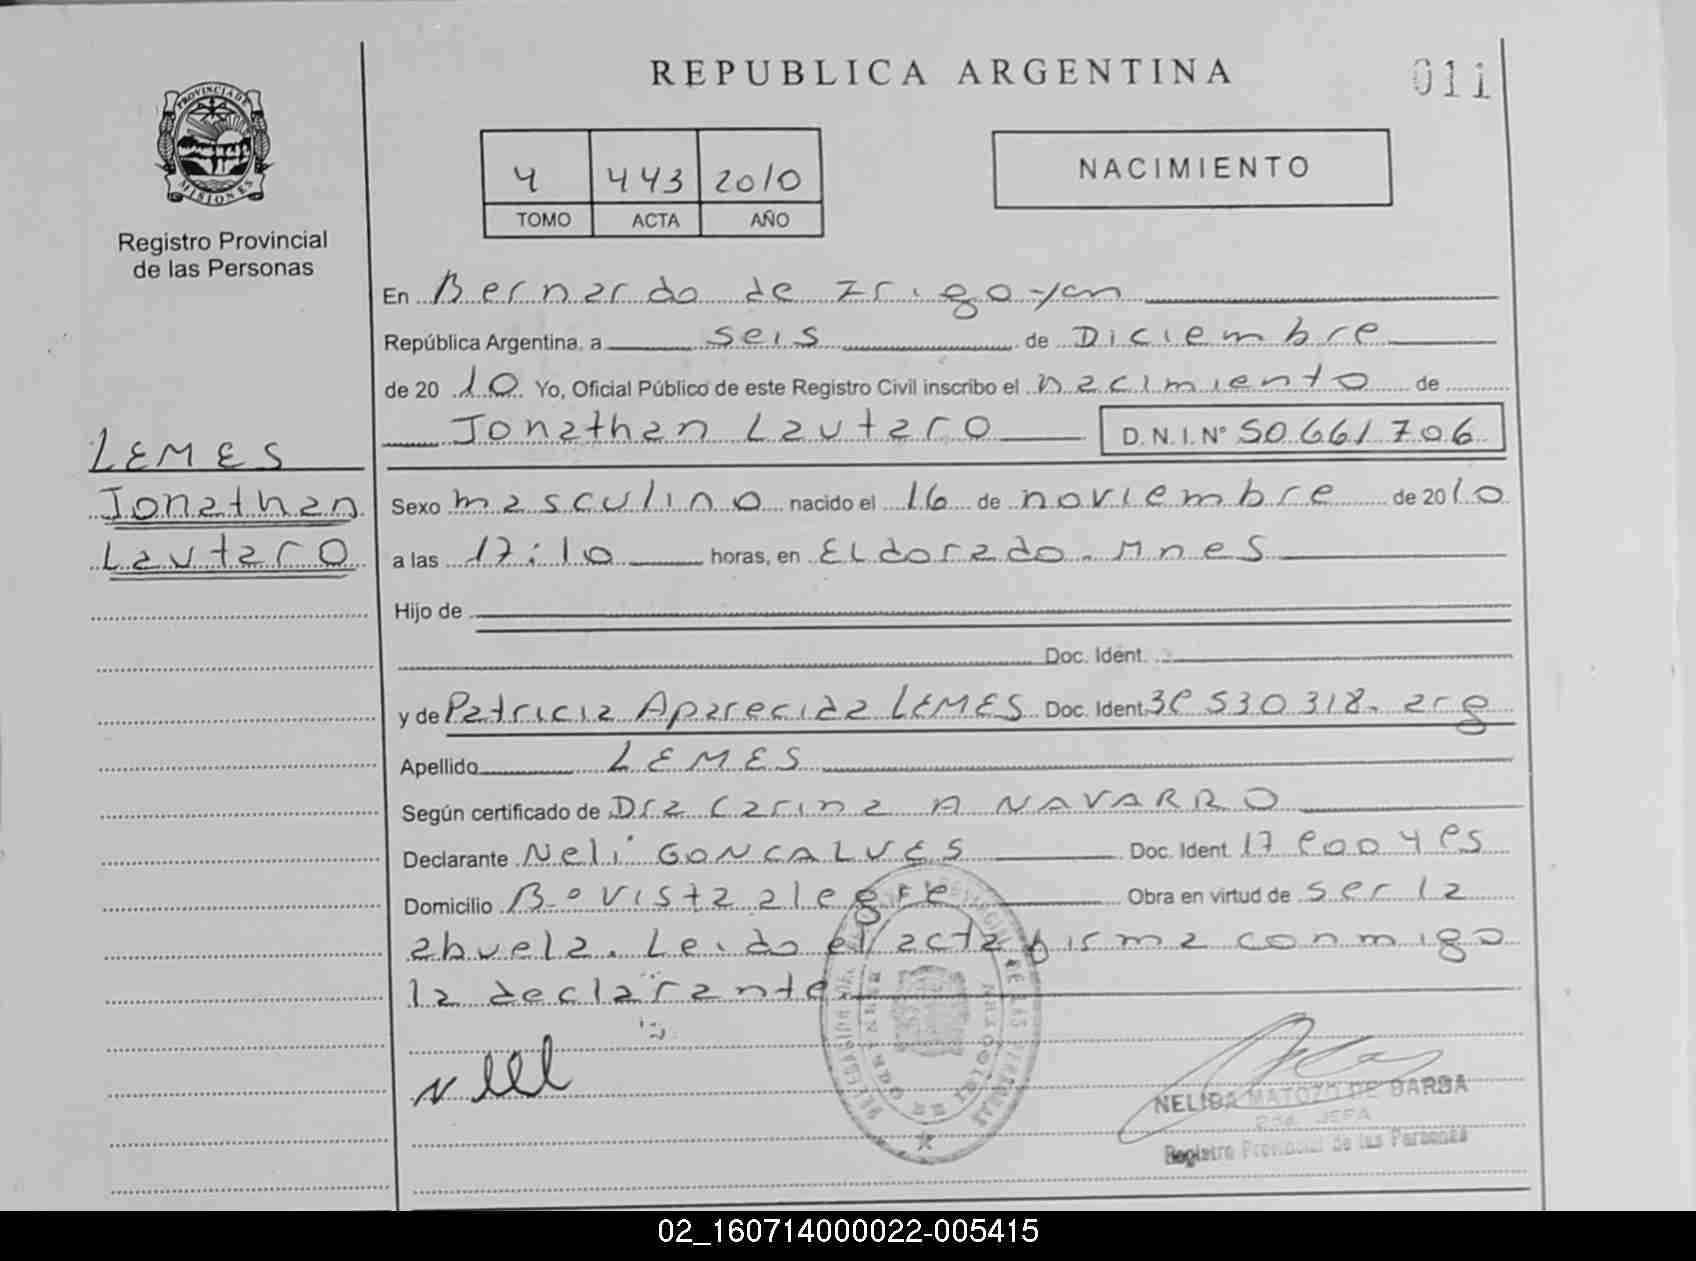 REPUBLICA ARGENTINA
011
PROVINCIA DE MISIONES
Registro Provincial
de las Personas
4 443 2010
TOMO ACTA AÑO
NACIMIENTO
En Bernardo de Irigoyen
República Argentina, a seis de Diciembre
de 2010 Yo, Oficial Público de este Registro Civil inscribo el nacimiento de
Jonathan Lautaro D.N.I. Nº 50661706
LEMES
Jonathan
Lautaro
Sexo masculino nacido el 16 de noviembre de 2010
a las 17:10 horas, en Eldorado. Mnes
Hijo de
Doc. Ident.
y de Patricia Aparecida LEMES Doc. Ident. 530 318. arg
Apellido LEMES
Según certificado de Dra Carina A NAVARRO
Declarante Neli GONCALVES Doc. Ident. 17
Domicilio B.º vista alegre Obra en virtud de ser la
abuela. Leido el acta firma conmigo
la declarante
NELIDA MATOZO DE BARBA
2da. JEFA
Registro Provincial de las Personas
02_160714000022-005415